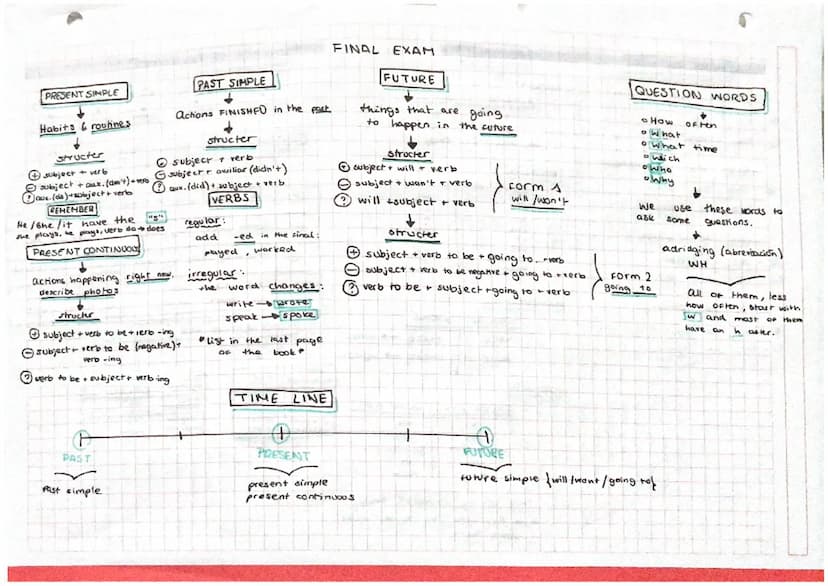 FINAL EXAM
PRESENT SIMPLE
Habits & routines
structer
⊕ subject + verb
⊖ subject + aux. (don't) + verb
? aux. (do) + subject + verb
REMEMBER
He/she/it have the "s"
she plays, he pays, verb do → does
PRESENT CONTINUOUS
actions happening right now,
describe photos
structer
⊕ subject + verb to be + verb -ing
⊖ subject + verb to be (negative) +
verb -ing
? verb to be + subject + verb -ing
PAST SIMPLE
Actions FINISHED in the past
structer
subject + verb
subject + auxiliar (didn't)
? aux. (did) + subject + verb
VERBS
regular:
add -ed in the final:
played, worked
irregular:
the word changes:
write → wrote
speak → spoke
"List in the last page
of the book"
FUTURE
things that are going
to happen in the future
structer
⊕ subject + will + verb
⊖ subject + won't + verb
? will + subject + verb
form 1
will/won't
structer
⊕ subject + verb to be + going to + verb
⊖ subject + verb to be negative + going to + verb
? verb to be + subject + going to + verb
form 2
going to
QUESTION WORDS
How often
What
What time
Wich
Who
Why
We use these words to
ask some questions.
adridging (abreviación)
WH
all of them, less
how often, start with
w and most of them
have an h after.
TIME LINE
PAST
PRESENT
FUTURE
Past simple
present simple
present continuous
future simple {will/wont/going to}